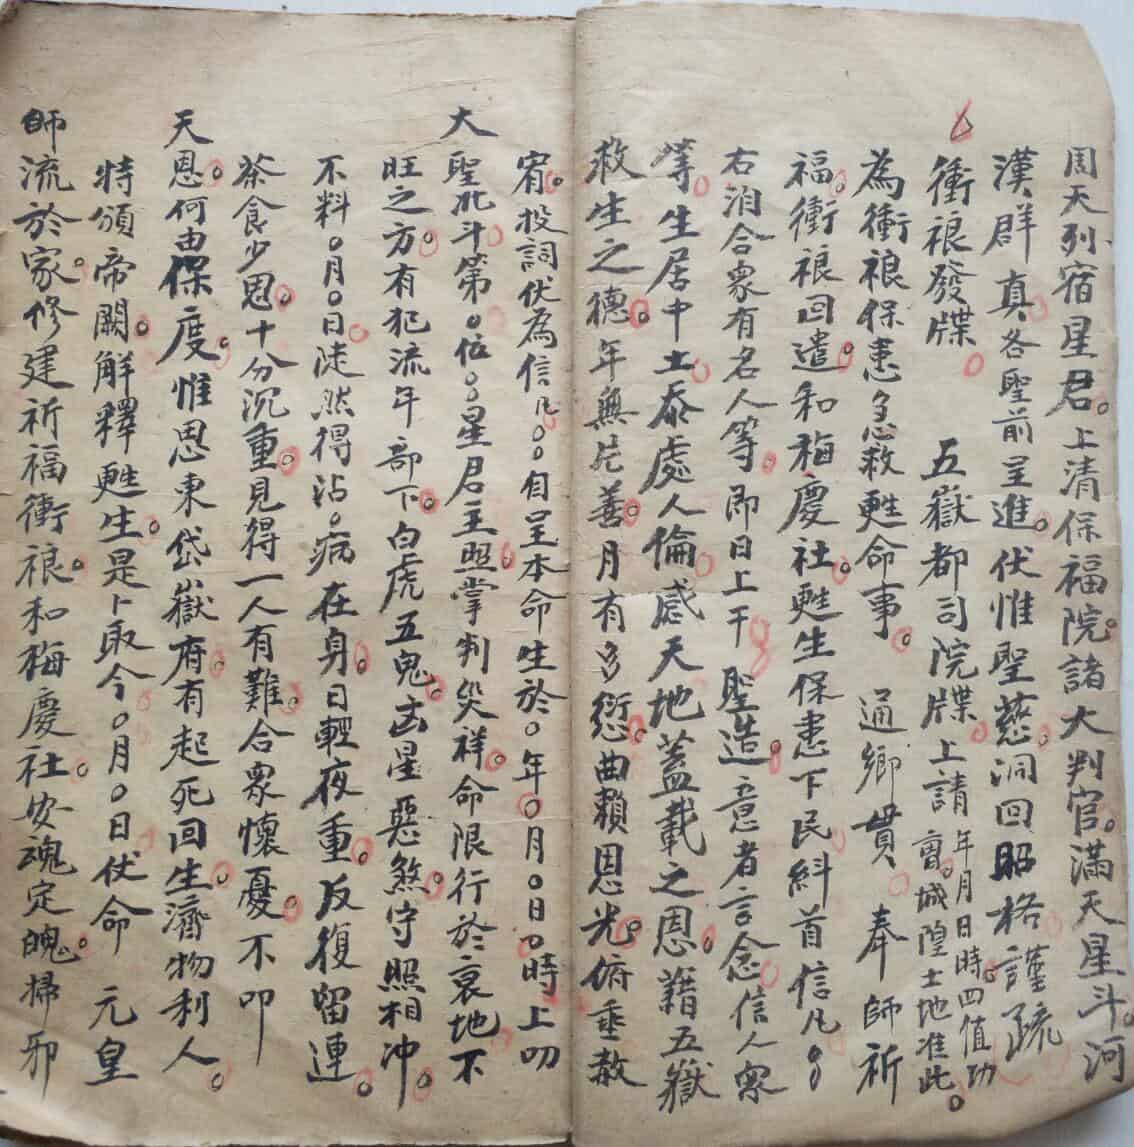 周天列宿星君。上清保福院。諸大判官。滿天星斗。河
漢群 真各聖前呈進。伏惟聖慈。洞回昭格謹疏
年月日時。四值功
衝裉發牒 五嶽都司院牒。上請曹。城隍土地准此。
為衝裉保患急救甦命事。 通鄉貫 奉師祈
福。衝裉回遣。和梅慶社。甦生保患下民糾首信凡〇〇
右洎合眾有名人等。即日上干 聖造。意者言念信人眾
等。生居中土。忝處人倫。感天地蓋載之恩。藉五嶽
救生之德。年無片善。月有多愆。曲賴恩光。俯垂赦
宥。投詞伏為信凡〇〇自呈本命生於〇年〇月〇日〇時上叨
大聖北斗第〇位〇星君主照。掌判災祥。命限行於衰地。不
旺之方。有犯流年部下。白虎五鬼。凶星惡煞。守照相冲。
不料〇月〇日陡然得沾〇病在身。日輕夜重。反復留連。
茶食少思。十分沉重。見得一人有難。合眾懷憂。不叩
天恩。何由保度。惟思東岱嶽府。有起死回生。濟物利人。
特頒帝闕。解釋甦生。是卜取今〇月〇日伏命 元皇
師流於家。修建祈福衝裉。和梅慶社。安魂定魄。掃邪